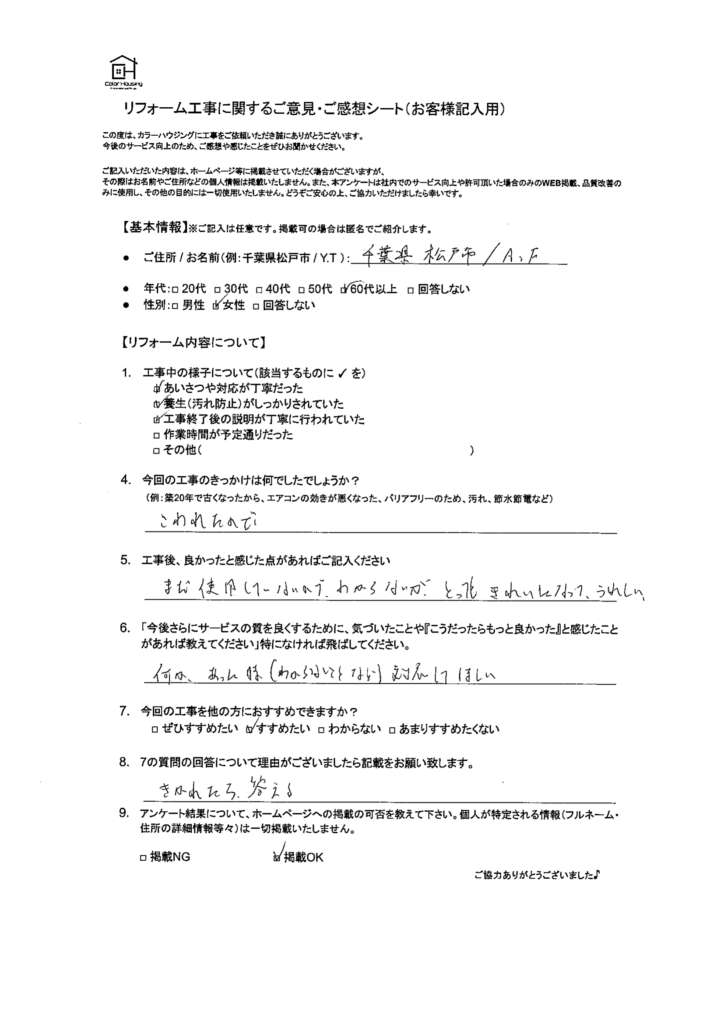 Color Housing
リフォーム工事に関するご意見・ご感想シート(お客様記入用)
この度は、カラーハウジングに工事をご依頼いただき誠にありがとうございます。
今後のサービス向上のため、ご感想や感じたことをぜひお聞かせください。
ご記入いただいた内容は、ホームページ等に掲載させていただく場合がございますが、
その際はお名前やご住所などの個人情報は掲載いたしません。また、本アンケートは社内でのサービス向上や許可頂いた場合のみのWEB掲載、品質改善の
みに使用し、その他の目的には一切使用いたしません。どうぞご安心の上、ご協力いただけましたら幸いです。
【基本情報】※ご記入は任意です。掲載可の場合は匿名でご紹介します。
● ご住所 / お名前(例:千葉県松戸市 / Y.T ): 千葉県 松戸市 / A、F
● 年代:□ 20代 □ 30代 □ 40代 □ 50代 ☑ 60代以上 □ 回答しない
● 性別:□ 男性 ☑ 女性 □ 回答しない
【リフォーム内容について】
1. 工事中の様子について(該当するものに ✓ を)
☑ あいさつや対応が丁寧だった
☑ 養生(汚れ防止)がしっかりされていた
☑ 工事終了後の説明が丁寧に行われていた
□ 作業時間が予定通りだった
□ その他( )
4. 今回の工事のきっかけは何でしたでしょうか?
(例:築20年で古くなったから、エアコンの効きが悪くなった、バリアフリーのため、汚れ、節水節電など)
こわれたので
5. 工事後、良かったと感じた点があればご記入ください
まだ使用していないので、わからないが、とっても きれいになって、うれしい
6. 「今後さらにサービスの質を良くするために、気づいたことや『こうだったらもっと良かった』と感じたこと
があれば教えてください」特になければ飛ばしてください。
何か、あった時(わからないことなど)対応してほしい
7. 今回の工事を他の方におすすめできますか?
□ ぜひすすめたい ☑ すすめたい □ わからない □ あまりすすめたくない
8. 7の質問の回答について理由がございましたら記載をお願い致します。
きかれたら、答える
9. アンケート結果について、ホームページへの掲載の可否を教えて下さい。個人が特定される情報(フルネーム・
住所の詳細情報等々)は一切掲載いたしません。
□ 掲載NG ☑ 掲載OK
ご協力ありがとうございました♪